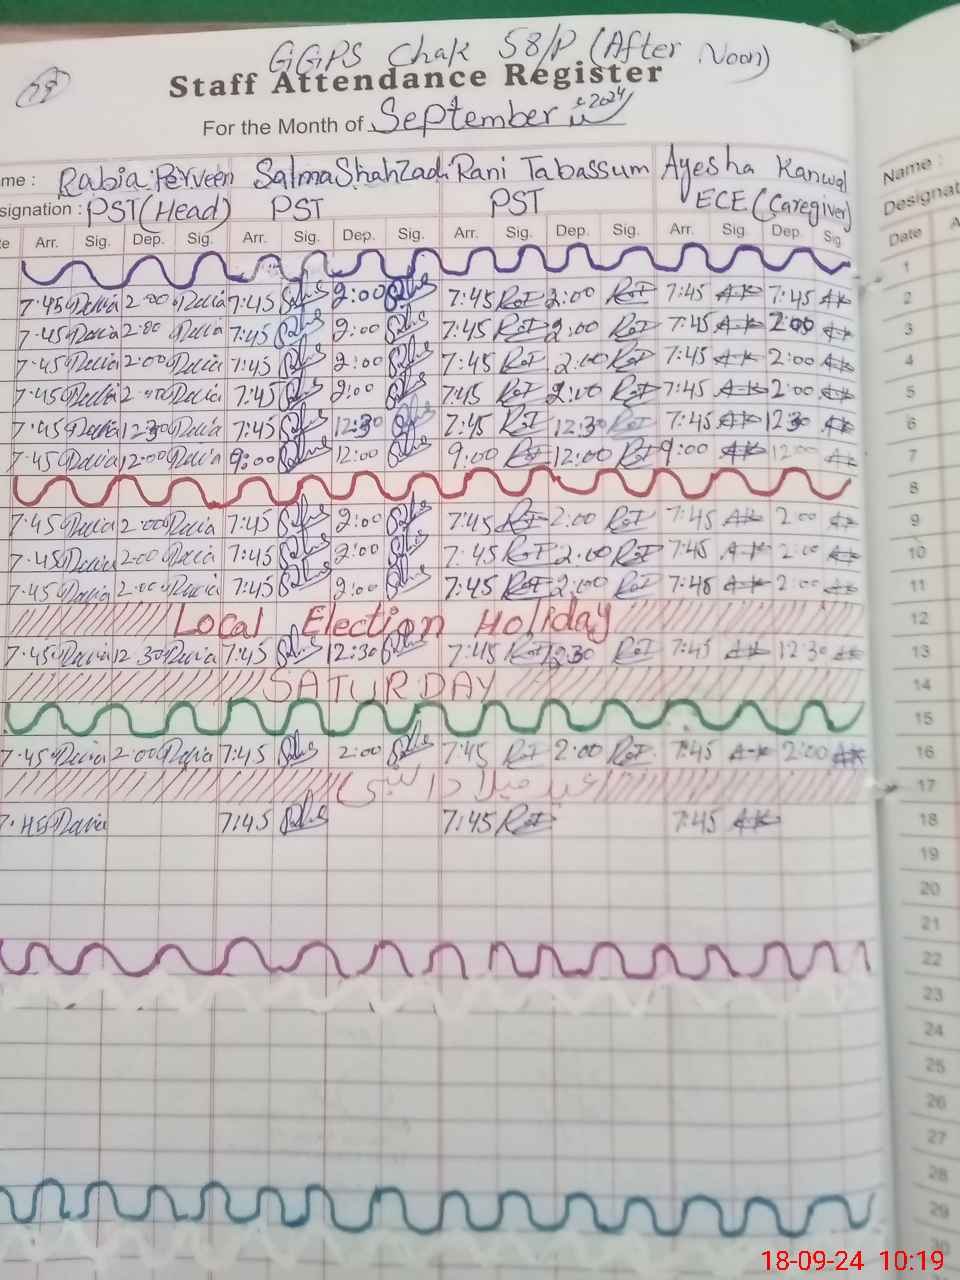 GGPS Chak 58/P (After Noon)
Staff Attendance Register
For the Month of September 2024
me : Rabia Perveen Salma Shahzadi Rani Tabassum Ayesha Kanwal
signation : PST (Head) PST PST ECE (Caregiver)
Name :
Designat
te Arr. Sig. Dep. Sig. Arr. Sig. Dep. Sig. Arr. Sig. Dep. Sig. Arr. Sig. Dep. Sig
Date A
1
7:45 2:00 7:45 2:00 7:45 RoT 2:00 RoT 7:45 AK 7:45 AK 2
7:45 2:00 7:45 2:00 7:45 RoT 2:00 RoT 7:45 AK 2:00 AK 3
7:45 2:00 7:45 2:00 7:45 RoT 2:00 RoT 7:45 AK 2:00 AK 4
7:45 2:00 7:45 2:00 7:45 RoT 2:00 RoT 7:45 AK 2:00 AK 5
7:45 12:30 7:45 12:30 7:45 RoT 12:30 RoT 7:45 AK 12:30 AK 6
7:45 12:00 9:00 12:00 9:00 RoT 12:00 RoT 9:00 AK 12:00 AK 7
8
7:45 2:00 7:45 2:00 7:45 RoT 2:00 RoT 7:45 AK 2:00 AK 9
7:45 2:00 7:45 2:00 7:45 RoT 2:00 RoT 7:45 AK 2:00 AK 10
7:45 2:00 7:45 2:00 7:45 RoT 2:00 RoT 7:45 AK 2:00 AK 11
Local Election Holiday 12
7:45 12:30 7:45 12:30 7:45 RoT 12:30 RoT 7:45 AK 12:30 AK 13
SATURDAY 14
15
7:45 2:00 7:45 2:00 7:45 RoT 2:00 RoT 7:45 AK 2:00 AK 16
عید میلادالنبی 17
7:45 7:45 7:45 RoT 7:45 AK 18
19
20
21
22
23
24
25
26
27
28
29
30
18-09-24 10:19